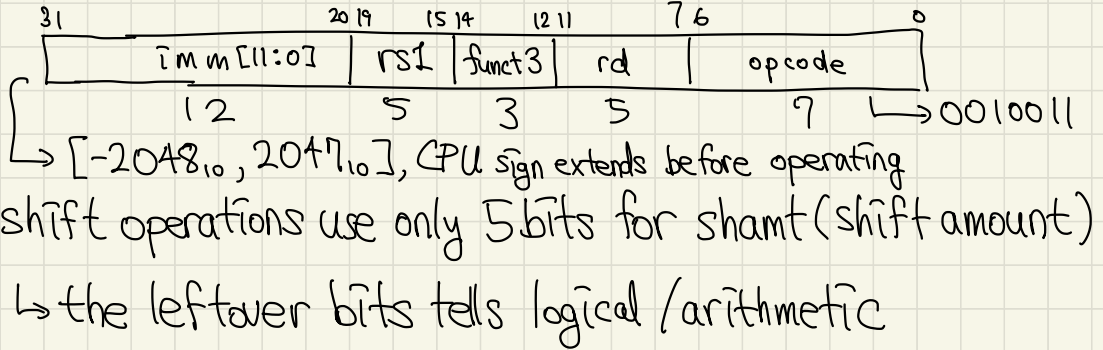 31 20 19 15 14 12 11 7 6 0
imm[11:0] rs1 funct3 rd opcode
12 5 3 5 7 ↳ 0010011
↳ [-2048₁₀, 2047₁₀], CPU sign extends before operating
shift operations use only 5bits for shamt(shift amount)
↳ the leftover bits tells logical/arithmetic